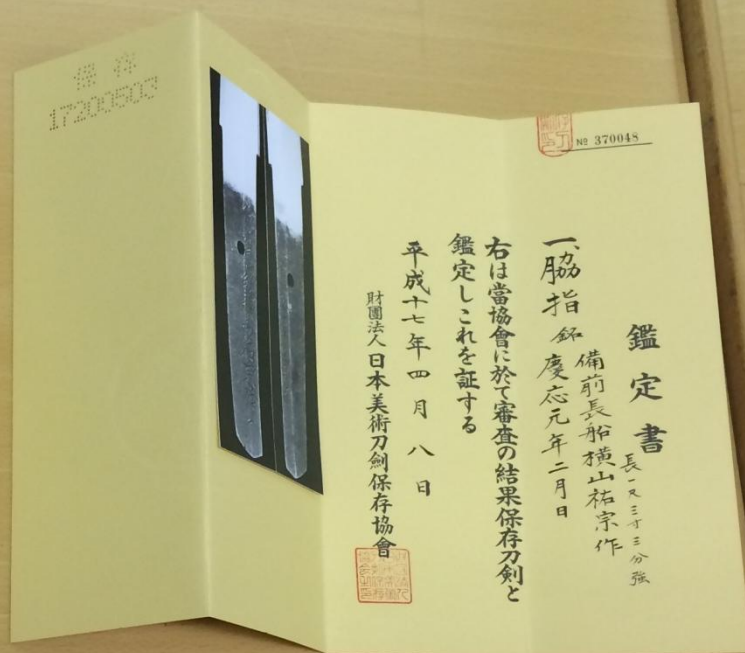 保存
17200503
№ 370048
鑑定書
一、脇指 銘 備前長船横山祐宗作
慶応元年二月日
長一尺三寸三分強
右は當協會に於て審査の結果保存刀剣と
鑑定しこれを証する
平成十七年四月八日
財團法人 日本美術刀劍保存協會